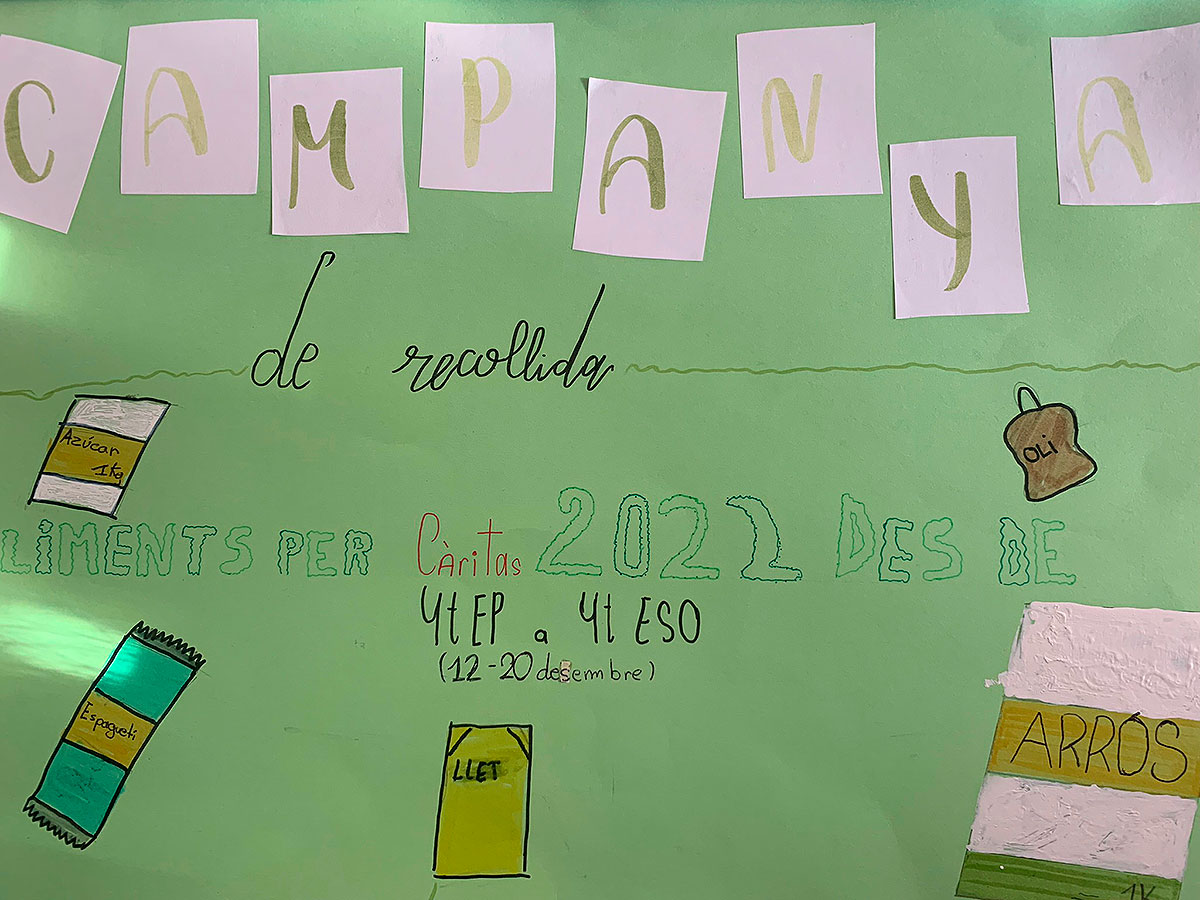 CAMPANYA
de recollida
Azúcar
1Kg
OLI
LIMENTS PER CÀritas 2022 DES DE
4t EP a 4t ESO
(12-20 desembre)
Espagueti
LLET
ARRÓS
1K